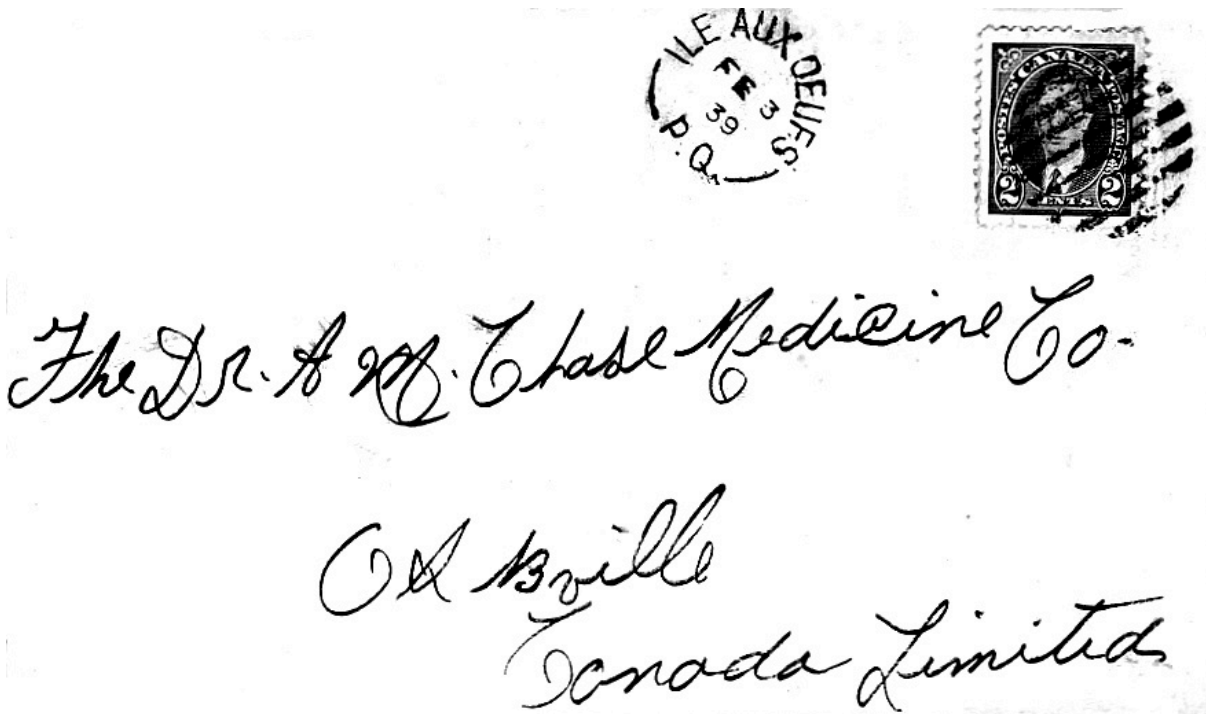 ILE AUX OEUFS
FE 3
39
P.Q.
POSTES CANADA POSTAGE
2 CENTS 2
The Dr. A M. Chase Medicine Co.
Canada Limited